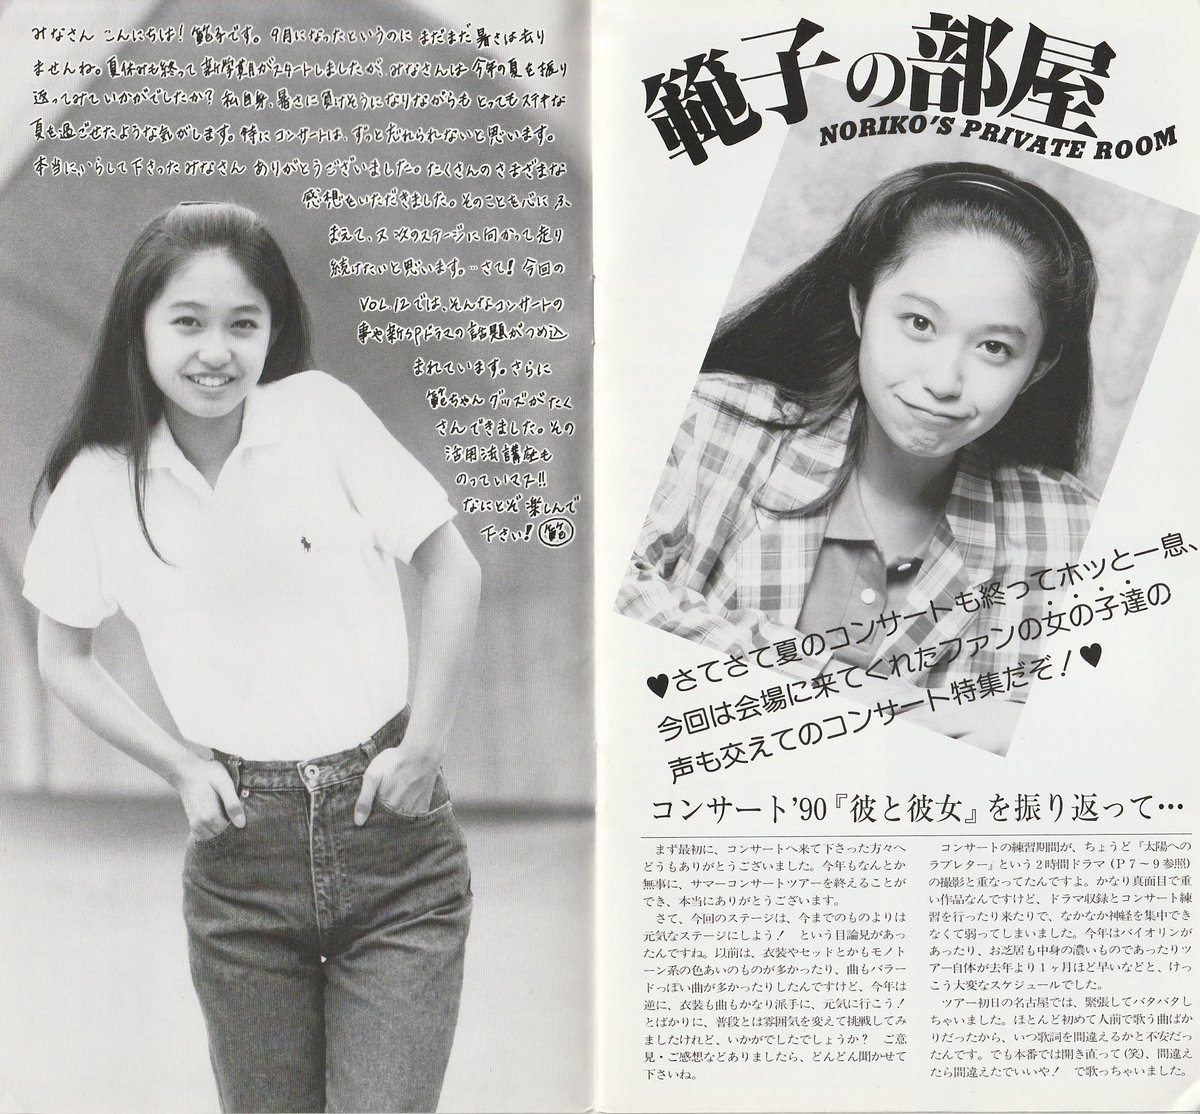 みなさん こんにちは！範子です。9月になったというのに まだまだ 暑さは去り
ませんね。夏休みも終って 新学期がスタートしましたが、みなさんは 今年の夏を振り
返ってみていかがでしたか？私自身、暑さに負けそうになりながらも とってもステキな
夏も過ごせたような気がします。特にコンサートは、ずっと忘れられないと思います。
本当に、いらして下さったみなさん ありがとうございました。たくさんのさまざまな
感想もいただきました。そのことも心にふ
まえて、又 次のステージに向かって走り
続けたいと思います。…さて！今回の
VOL.12では、そんなコンサートの
事や新SPドラマの話題がつめ込
まれています。さらに
範ちゃんグッズがたく
さんできました。その
活用法講座も
のっていマス!!
なにとぞ楽しんで
下さい！範
範子の部屋
NORIKO'S PRIVATE ROOM
♥さてさて夏のコンサートも終ってホッと一息、
今回は会場に来てくれたファンの女の子達の
声も交えてのコンサート特集だぞ！♥
コンサート'90『彼と彼女』を振り返って…
まず最初に、コンサートへ来て下さった方々へ
どうもありがとうございました。今年もなんとか
無事に、サマーコンサートツアーを終えることが
でき、本当にありがとうございます。
さて、今回のステージは、今までのものよりは
元気なステージにしよう！ という目論見があっ
たんですね。以前は、衣装やセットとかもモノト
ーン系の色あいのものが多かったり、曲もバラー
ドっぽい曲が多かったりしたんですけど、今年は
逆に、衣装も曲もかなり派手に、元気に行こう！
とばかりに、普段とは雰囲気を変えて挑戦してみ
ましたけれど、いかがでしたでしょうか？ ご意
見・ご感想などありましたら、どんどん聞かせて
下さいね。
コンサートの練習期間が、ちょうど『太陽への
ラブレター』という2時間ドラマ(P7〜9参照)
の撮影と重なってたんですよ。かなり真面目で重
い作品なんですけど、ドラマ収録とコンサート練
習を行ったり来たりで、なかなか神経を集中でき
なくて弱ってしまいました。今年はバイオリンが
あったり、お芝居も中身の濃いものであったりツ
アー自体が去年より1ヶ月ほど早いなどと、けっ
こう大変なスケジュールでした。
ツアー初日の名古屋では、緊張してバタバタし
ちゃいました。ほとんど初めて人前で歌う曲ばか
りだったから、いつ歌詞を間違えるかと不安だっ
たんです。でも本番では開き直って(笑)、間違え
たら間違えたでいいや！ で歌っちゃいました。